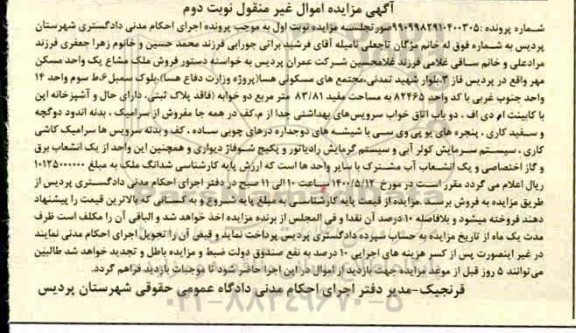 آگهی مزایده اموال غیر منقول نوبت دوم
شماره پرونده :۹۹۰۹۹۸۲۹۱۰۴۰۰۳۰۵صورتجلسه مزایده نوبت اول به موجب پرونده اجرای احکام مدنی دادگستری شهرستان
پردیس به شماره فوق له خانم مژگان تاجعلی نامیله آقای فرشید براتی جورابی فرزند محمد حسین و خانوم زهرا جعفری فرزند
مرادعلی و خانم ساقی غلامی فرزند غلامحسین شرکت عمران پردیس به خواسته دستور فروش ملک مشاع یک واحد مسکن
مهر واقع در پردیس فاز ۳.بلوار شهید تمدنی،مجتمع های مسکونی هسا(پروژه وزارت دفاع هسا).بلوک سمبل ۶.ط سوم واحد ۱۴
واحد جنوب غربی با کد واحد ۸۲۴۶۵ به مساحت مفید ۸۳/۸۱ متر مربع دو خوابه (فاقد پلاک ثبتی، دارای حال و آشپزخانه اپن
با کابینت ام دی اف . دو باب اتاق خواب سرویس‌های بهداشتی جدا از م.کف در همه جا مفروش از سرامیک . بدنه اندود دوگچه
و سفید کاری . پنجره های یو پی وی سی با شیشه های دوجداره درزهای چوبی ساده . کف و بدنه سرویس ها سرامیک کاشی
کاری . سیستم سرمایش کولر آبی و سیستم گرمایش رادیاتور و پکیج شوفاژ دیواری و همچنین این واحد از یک انشعاب برق
و گاز اختصاصی و یک انشعاب آب مشترک با سایر واحد ها است که ارزش پایه کارشناسی شدانگ ملک به مبلغ ۱۰۱۲۵۰۰۰۰۰۰
ریال اعلام می گردد مقرر است در مورخ ۱۴۰۰/۵/۱۲ ساعت ۱۰ الی ۱۱ صبح در دفتر اجرای احکام مدنی دادگستری پردیس از
طریق مزایده به فروش برسد. مزایده از قیمت پایه کارشناسی به مبلغ پایه شروع و به کسانی که بالاترین قیمت را پیشنهاد
دهند فروخته میشود و بلافاصله ۱۰ درصد آن نقدا و فی المجلس از برنده مزایده اخذ خواهد شد و الباقی آن را مکلف است ظرف
مدت یک ماه از تاریخ مزایده به حساب سپرده دادگستری پردیس پرداخت نماید و قبض آن را تحویل اجرای احکام مدنی نمایند
در غیر اینصورت پس از کسر هزینه های اجرایی ۱۰ درصد به نفع صندوق دولت ضبط و مزایده باطل و تجدید خواهد شد طالبین
می‌توانند ۵ روز قبل از موعد مزایده جهت بازدید از اموال در این اجرا حاضر شود تا موجبات بازدید فراهم گردد.
قرنجیک-مدیر دفتر اجرای احکام مدنی دادگاه عمومی حقوقی شهرستان پردیس
۰۲۱-۸۸۳۴۹۶۷۰-۵